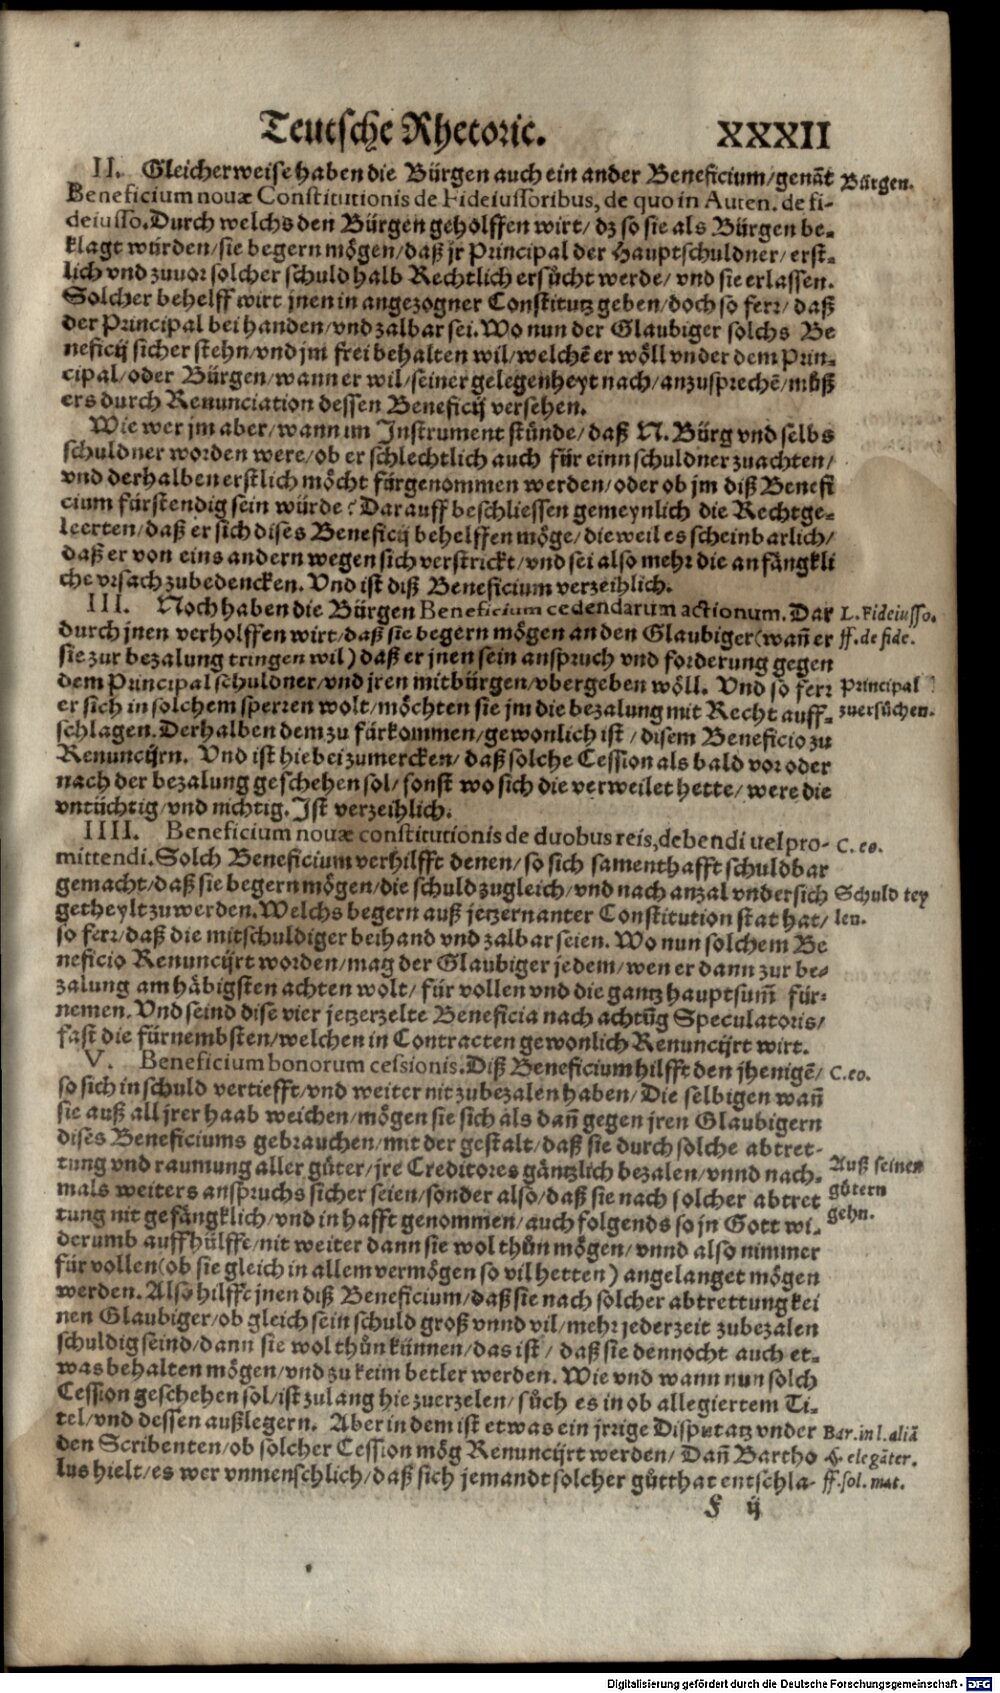 Teutsche Rhetoric. XXXII
II. Gleicherweise haben die Bürgen auch ein ander Beneficium/genāt
Bürgen.
Beneficium nouæ Constitutionis de Fideiussoribus, de quo in Auten. de fi-
deiusso. Durch welchs den Bürgen geholffen wirt/ dz so sie als Bürgen be-
klagt würden/sie begern mögen/daß jr Principal der Hauptschuldner/erst-
lich vnd zuuor solcher schuld halb Rechtlich ersůcht werde/ vnd sie erlassen.
Solcher behelff wirt jnen in angezogner Constitutz geben/doch so ferr/ daß
der Principal bei handen/vnd zalbar sei. Wo nun der Glaubiger solchs Be
neficij sicher stehn/vnd jm frei behalten wil/welchē er wöll vnder dem Prin-
cipal/oder Bürgen/wann er wil/seiner gelegenheyt nach/anzusprechē/můß
ers durch Renunciation dessen Beneficij versehen.
Wie wer jm aber/wann im Instrument stünde/daß N. Bürg vnd selbs
schuldner worden were/ob er schlechtlich auch für einn schuldner zuachten/
vnd derhalben erstlich möcht fürgenommen werden/oder ob jm diß Benefi
cium fürstendig sein würde? Darauff beschliessen gemeynlich die Rechtge-
leerten/daß er sich dises Beneficij behelffen möge/dieweil es scheinbarlich/
daß er von eins andern wegen sich verstrickt/vnd sei also mehr die anfängkli
che vrsach zubedencken. Vnd ist diß Beneficium verzeihlich.
III. Noch haben die Bürgen Beneficium cedendarum actionum. Dar
L. Fideiusso.
ff. de fide.
durch jnen verholffen wirt/daß sie begern mögen an den Glaubiger (wañ er
sie zur bezalung tringen wil) daß er jnen sein anspruch vnd forderung gegen
dem Principal schuldner/vnd jren mitbürgen/vbergeben wöll. Vnd so ferr
Principal
zuersůchen.
er sich in solchem sperren wolt/möchten sie jm die bezalung mit Recht auff-
schlagen. Derhalben dem zu fürkommen/gewonlich ist/disem Beneficio zu
Renuncijrn. Vnd ist hiebei zumercken/ daß solche Cession als bald vor oder
nach der bezalung geschehen sol/sonst wo sich die verweilet hette/were die
vntüchtig/vnd nichtig. Ist verzeihlich.
IIII. Beneficium nouæ constitutionis de duobus reis, debendi uel pro-
C. eo.
mittendi. Solch Beneficium verhilfft denen/so sich samenthafft schuldbar
gemacht/daß sie begern mögen/die schuld zugleich/vnd nach anzal vndersich
Schuld tey
len.
getheylt zuwerden. Welchs begern auß jetzernanter Constitution stat hat/
so ferr/daß die mitschuldiger beihand vnd zalbar seien. Wo nun solchem Be
neficio Renuncijrt worden/mag der Glaubiger jedem/wen er dann zur be-
zalung am häbigsten achten wolt/ für vollen vnd die gantz hauptsum̃ für-
nemen. Vnd seind dise vier jetzerzelte Beneficia nach achtūg Speculatoris/
fast die fürnembsten/welchen in Contracten gewonlich Renuncijrt wirt.
V. Beneficium bonorum cessionis. Diß Beneficium hilfft den jhenigē/
C. eo.
so sich in schuld vertiefft/vnd weiter nit zubezalen haben/Die selbigen wañ
sie auß all jrer haab weichen/mögen sie sich als dañ gegen jren Glaubigern
dises Beneficiums gebrauchen/mit der gestalt/daß sie durch solche abtret-
tung vnd raumung aller güter/jre Creditores gäntzlich bezalen/vnnd nach-
Auß seinen
götern
gehn.
mals weiters anspruchs sicher seien/sonder also/daß sie nach solcher abtret
tung nit gefängklich/vnd in hafft genommen/auch folgends so jn Gott wi-
derumb auffhülffe/nit weiter dann sie wol thůn mögen/vnnd also nimmer
für vollen (ob sie gleich in allem vermögen so vil hetten) angelanget mögen
werden. Also hilfft jnen diß Beneficium/daß sie nach solcher abtrettung kei
nen Glaubiger/ob gleich sein schuld groß vnnd vil/mehr jederzeit zubezalen
schuldig seind/dann sie wol thůn künnen/das ist/ daß sie dennocht auch et-
was behalten mögen/vnd zu keim betler werden. Wie vnd wann nun solch
Cession geschehen sol/ist zulang hie zuerzelen/sůch es in ob allegiertem Ti-
tel/vnd dessen außlegern. Aber in dem ist etwas ein jrrige Disputatz vnder
Bar. in l. aliā
§. elegāter.
ff. sol. mat.
den Scribenten/ob solcher Cession mög Renuncijrt werden/ Dañ Bartho
lus hielt/es wer vnmenschlich/daß sich jemandt solcher gůtthat entschla-
F ij
Digitalisierung gefördert durch die Deutsche Forschungsgemeinschaft - DFG